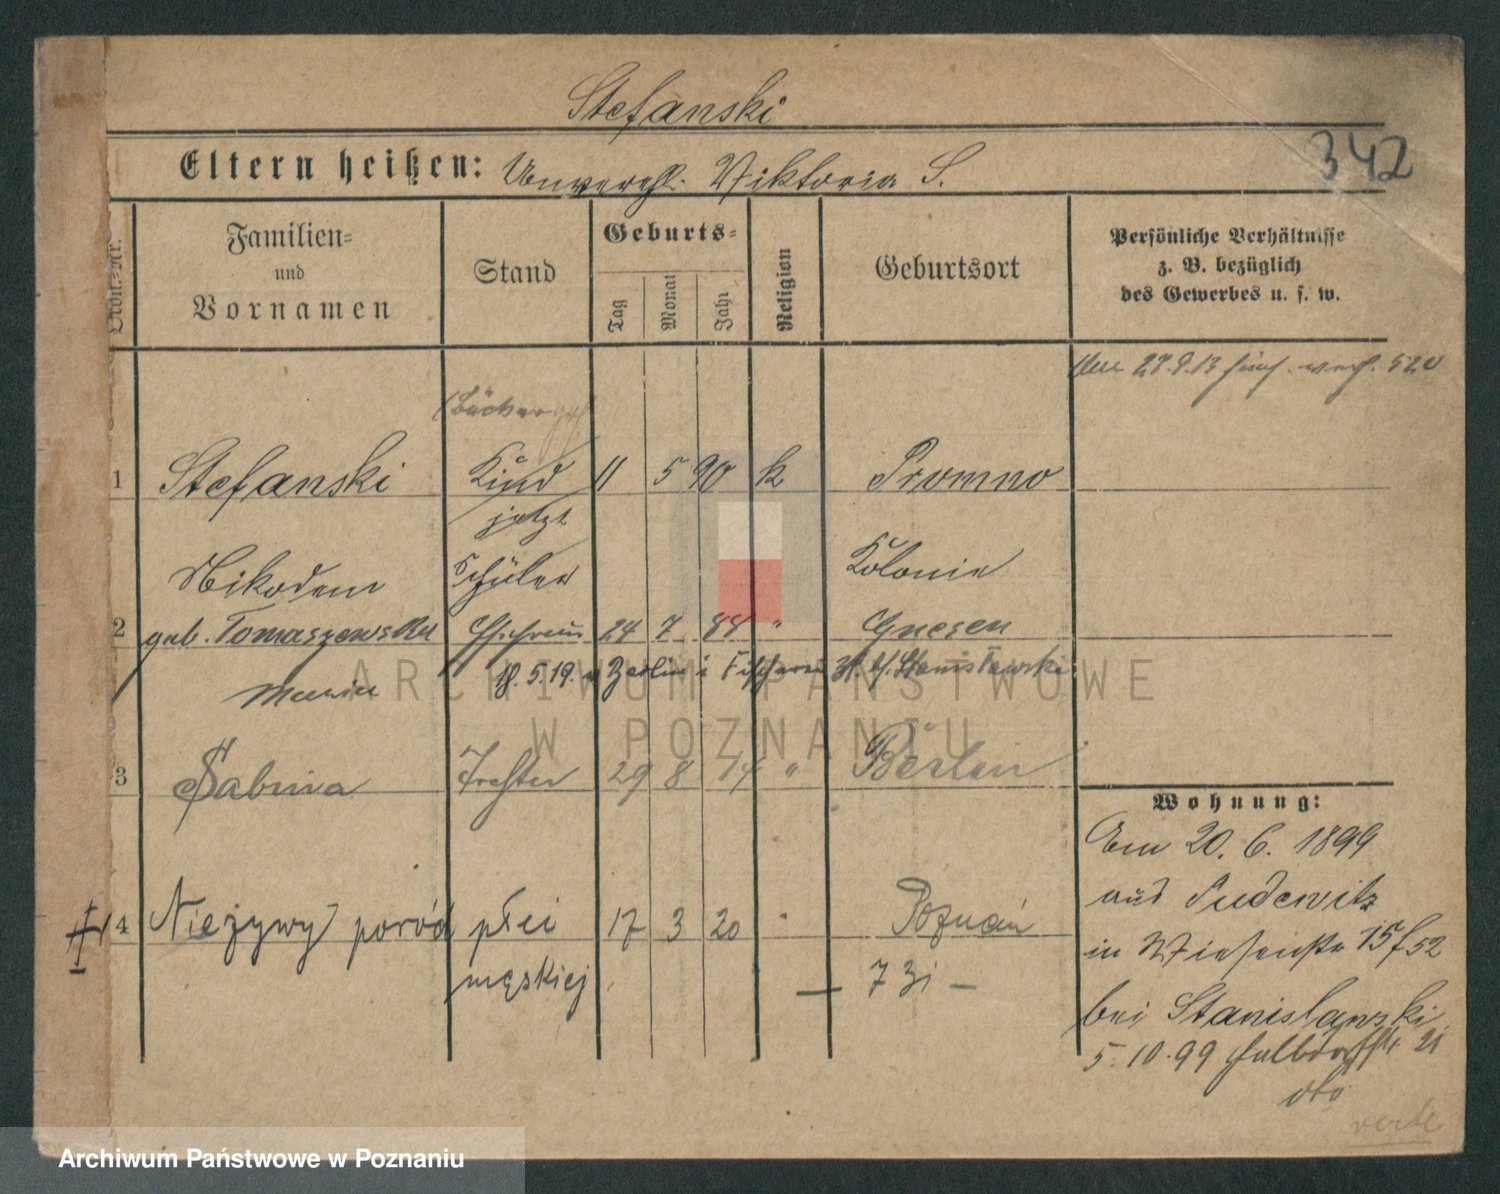 Stefanski
342
Eltern heißen: Unverehl. Viktoria S.
Ordn.-Nr.
Familien-
und
Vornamen
Stand
Geburts-
Tag
Monat
Jahr
Religion
Geburtsort
Persönliche Verhältnisse
z. B. bezüglich
des Gewerbes u. s. w.
27.9.13 520
(Bäckerges
1 Stefanski Kind 11 5 90 k Promno
jetzt
Nikodem Schüler Kolonie
2 geb. Tomaszewska Ehefrau 24 7 88 " Gnesen
18.5.19. Berlin Stanisławski
Maria
3 Sabina Tochter 29 8 14 " Berlin
Wohnung:
Am 20. 6. 1899
aus Pudewitz
in Wiesenstr 15 f 52
bei Stanislawski
5.10.99 Halbdorfstr 21
dto
verte
4 Nieżywy poród płci 17 3 20 " Poznań
męskiej — 7 3i —
ARCHIWUM PAŃSTWOWE
W POZNANIU
Archiwum Państwowe w Poznaniu